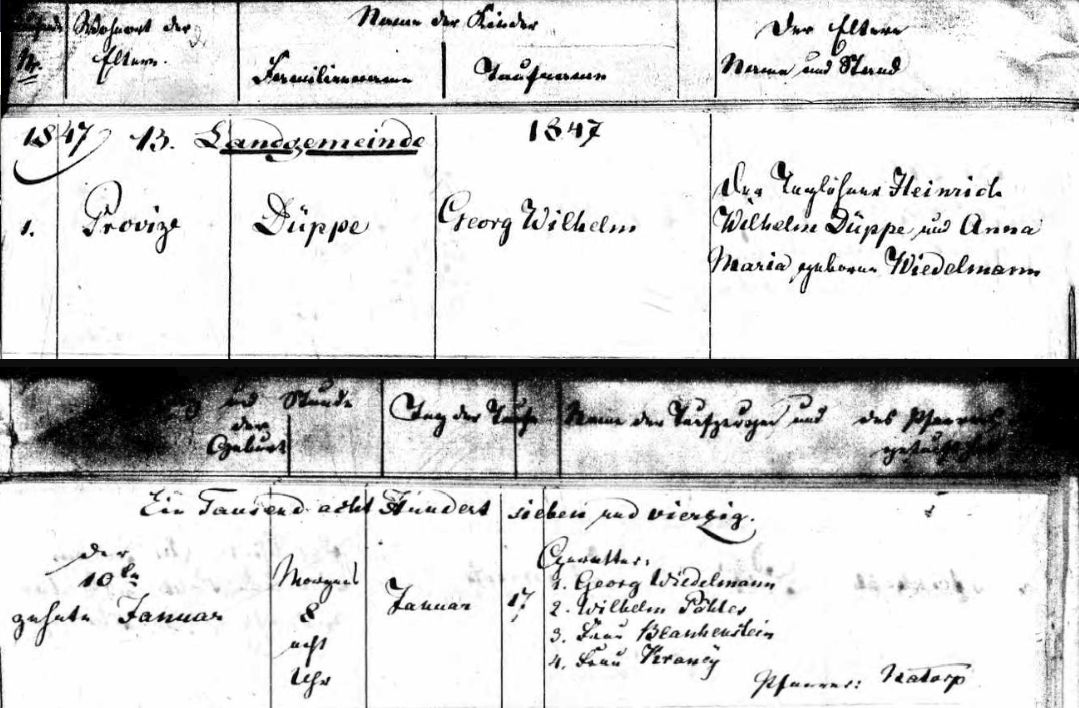 Nr.
Wohnort der
Eltern.
Name der Kinder
Familienname
Taufname
Der Eltern
Name und Stand
1847 B. Landgemeinde 1847
1. Provize Düppe Georg Wilhelm
Der Taglöhner Heinrich
Wilhelm Düppe und Anna
Maria geborene Wiedelmann
und Stunde
der
Geburt
Tag der Taufe
Name der Taufzeugen und des Pfarrers
Ein Tausend acht Hundert sieben und vierzig.
der
10te
zehnte Januar
Morgens
8
acht
Uhr
Januar 17
Gevatter:
1. Georg Wiedelmann
2. Wilhelm Pöhles
3. Frau Blankenstein
4. Frau Kraney
Pfarrer: Natorp